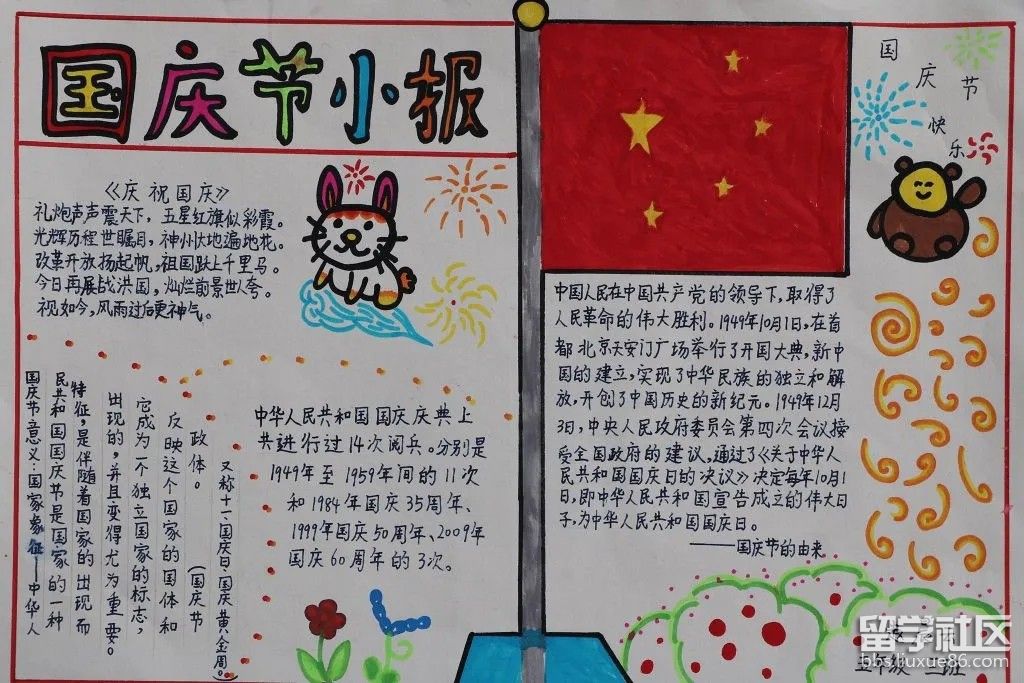 国庆节小报
《庆祝国庆》
礼炮声声震天下，五星红旗似彩霞。
光辉历程世瞩目，神州大地遍地花。
改革开放扬起帆，祖国跃上千里马。
今日再展战洪国，灿烂前景世人夸。
视如今，风雨过后更神气。
国庆节意义：国家象征——中华人
民共和国国庆节是国家的一种
特征，是伴随着国家的出现而
出现的，并且变得尤为重要。
它成为一个独立国家的标志，
反映这个国家的国体和
政体。（国庆节
又称十一、国庆日、国庆黄金周。）
中华人民共和国国庆庆典上
共进行过14次阅兵。分别是
1949年至1959年间的11次
和1984年国庆35周年、
1999年国庆50周年、2009年
国庆60周年的3次。
国庆节快乐
中国人民在中国共产党的领导下，取得了
人民革命的伟大胜利。1949年10月1日，在首
都北京天安门广场举行了开国大典，新中
国的建立，实现了中华民族的独立和解
放，开创了中国历史的新纪元。1949年12月
3日，中央人民政府委员会第四次会议接
受全国政府的建议，通过了《关于中华人
民共和国国庆日的决议》决定每年10月1
日，即中华人民共和国宣告成立的伟大日
子，为中华人民共和国国庆日。
——国庆节的由来
留学社区
bbs.liuxue86.com